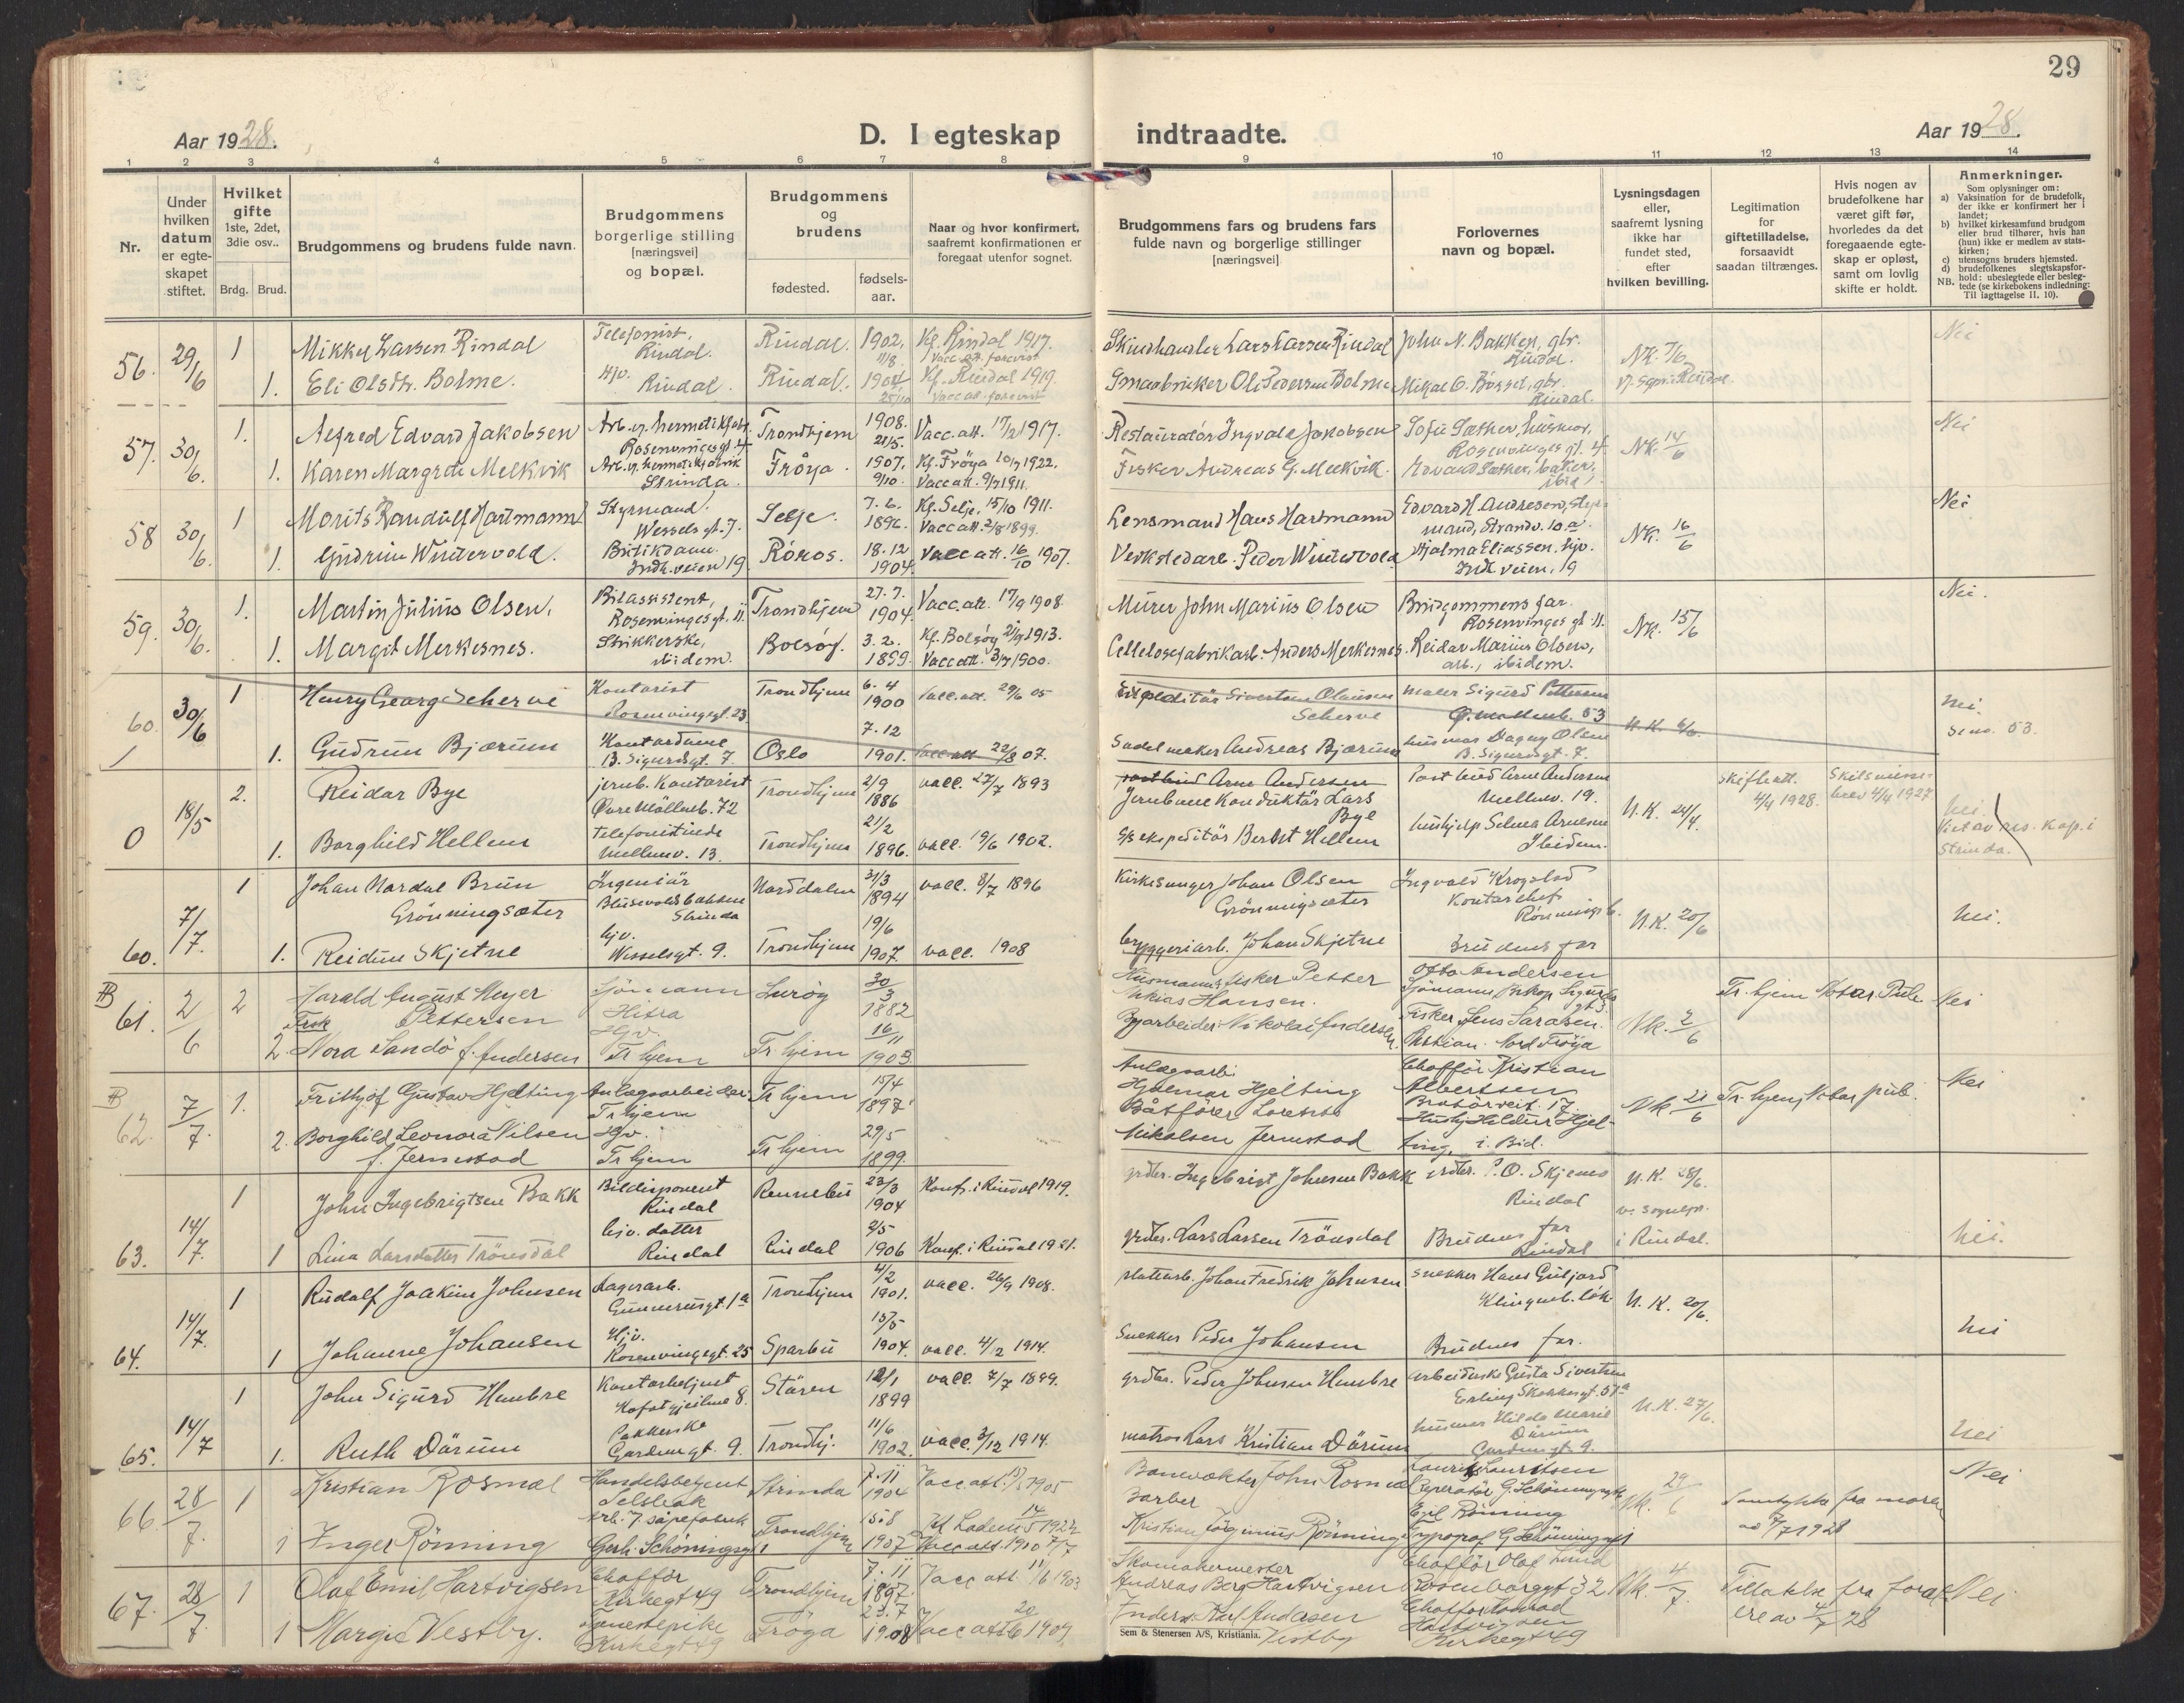 29
Aar 1928.
D. I egteskap indtraadte.
Aar 1928.
1 2 3 4 5 6 7 8 9 10 11 12 13 14
Nr.
Under hvilken datum er egte-skapet stiftet.
Hvilket gifte 1ste, 2det, 3die osv..
Brdg. Brud.
Brudgommens og brudens fulde navn.
Brudgommens borgerlige stilling [næringsvei] og bopæl.
Brudgommens og brudens
fødested.
fødsels-aar.
Naar og hvor konfirmert, saafremt konfirmationen er foregaat utenfor sognet.
Brudgommens fars og brudens fars fulde navn og borgerlige stillinger [næringsvei]
Forlovernes navn og bopæl.
Lysningsdagen eller, saafremt lysning ikke har fundet sted, efter hvilken bevilling.
Legitimation for giftetilladelse, forsaavidt saadan tiltrænges.
Hvis nogen av brudefolkene har været gift før, hvorledes da det foregaaende egte-skap er opløst, samt om lovlig skifte er holdt.
Anmerkninger.
Som oplysninger om:
a) Vaksination for de brudefolk, der ikke er konfirmert her i landet;
b) hvilket kirkesamfund brudgom eller brud tilhører, hvis han (hun) ikke er medlem av stats-kirken;
c) utensogns bruders hjemsted.
d) brudefolkenes slegtskapsfor-hold: ubeslegtede eller besleg-tede (se kirkebokens indledning: Til iagttagelse II. 10).
NB.
56. 29/6 1 Mikkel Larsen Rindal Telefonist, Rindal. Rindal. 1902. 11/8 Kf. Rindal 1917. Vacc. att. forevist Skindhandler Lars Larsen Rindal John N. Bakken, gbr. Rindal. NK. 7/6 Nei
1. Eli Olsdtr. Bolme. Hjv. Rindal. Rindal. 1904 25/10 Kf. Rindal 1919. Vacc att. forevist Smaabruker Ole Pedersen Bolme Mikal O. Bossel, gbr. Rindal.
57. 30/6. 1. Alfred Edvard Jakobsen Arb. v. hermetikfabr. Rosenvingesgt. 4 Trondhjem 1908. 21/5. Vacc. att. 17/2 1917. Restauratør Ingvald Jakobsen Sofie Sæther, husmor, Rosenvinges gt. 4. NK. 14/6 Nei
1. Karen Margrete Melkvik Arb. v. hermetikfabrik Strinda. Frøya. 1907. 9/10. Kf. Frøya 10/9 1922. Vacc att. 9/7 1911. Fisker Andreas G. Melkvik. Edvard Sæther, baker, ibid.
58 30/6. 1 Morits Randulf Hartmann Styrmand. Wessels gt. 7. Selje. 7. 6. 1896. Kf. Selje. 15/10 1911. Vacc att. 2/8 1899. Lensmand Hans Hartmann Edvard H. Andresen, styrmand, Strandv. 10.a. NK. 16/6 Nei
1. Gudrun Wintervold. Butikdame. Indh. veien 19 Röros. 18. 12 1904. Vacc att. 16/10 1907. Verkstedarb. Peder Wintervold Hjalma Eliassen, hjv. Indh veien. 19
59. 30/6. 1. Martin Julius Olsen. Bilassistent, Rosenvingesgt. 11. Trondhjem 27. 7. 1904. Vacc. att. 17/9 1908. Murer John Marius Olsen Brudgommens far. Rosenvinges gt. 11. NK. 15/6 Nei.
1. Margit Merkesnes. Strikkerske, ibidem. Bolsøy. 3. 2. 1899. Kf. Bolsøy 21/9 1913. Vacc att. 3/7 1900. Cellelosefabrikarb. Anders Merkesnes. Reidar Marius Olsen, arb., ibidem.
60. 30/6 1 Henry Georg Scherve Kontorist Rosenvingegt. 23 Trondhjem 6. 4 1900 Vacc. att. 29/6 05 Expeditör Sivertsen Olausen Scherve maler Sigurd Pettersen Ø. møllenb. 53 N.K. 6/6. nei. se no. 53.
1. Gudrun Bjærum Kontordame B. Sigurdsgt. 7. Oslo 7. 12 1901. Vacc att 22/8 07. Sadelmaker Andreas Bjærum husmor Dagny Olsen B. Sigurdsgt. 7.
0 18/5 2. Reidar Bye jernb. Kontorist Øvre Möllenb. 72 Trondhjem 2/9 1886 vacc. 27/7 1893 postbud Arne Andersen Jernbane Konduktör Lars Bye Post bud Arne Andersen Mellemv. 19. N.K. 24/4. Skifteatt. 4/4 1928. Skilsmisse-brev 4/4 1927 nei. Viet av res. kap. i Strinda.
1. Borghild Hellem Telefonistinde Mellemv. 13. Trondhjem 21/2 1896. vacc. 19/6 1902. G/s ekspeditör Berbst Hellem hushjelp Selma Arnesen Ibidem.
60. 7/7. 1 Johan Nordal Brun Grönningsæter Ingeniør Blusevoldsbakken Strinda Norddalen 31/3 1894 vacc. 8/7 1896 Kirkesanger Johan Olsen Grönningsæter Ingvald Krogstad Kontorchef Rönningsb. N.K. 20/6 nei.
1. Reidun Skjetne hjv. Wesselsgt. 9. Trondhjem 19/6 1907. vacc. 1908 bryggeriarb. Johan Skjetne Brudens far
B 61. 2/6 2 Harald August Meyer Pettersen Fisk Sjömann Hitra Lurøy 30/3 1882 Husmann, fisker Petter Mkias Hansen. Otto Andersen Sjömann, Biskop Sigurds gt 3. NK. 2/6 Tr. hjem Notar. Publ. Nei
2 Nora Sandö f. Andersen Hjv. Tr hjem Tr. hjem 16/11 1903 Byarbeider Nikolai Andersen. Fisker Jens Saralsen. Nord Frøya
B 62. 7/7. 1. Frithjof Gustav Hjelting Anlægsarbeider Tr hjem Tr hjem 15/4 1897 Anlægsarb. Hjalmar Hjelting Chafför Kristian Albertsen Bratörveit. 17. NK 21/6 Tr. hjem, Notar publ. Nei
2. Borghild Leonora Nilsen f. Jermstad Hjv. Tr hjem Tr hjem 29/5 1899. Båtfører Lorents Nikolsen Jermstad Hushj Hildur Hjelting, i. Bid.
63. 14/7. 1 John Ingebrigtsen Bakk Bildisponent Rindal Rennebu 23/3 1904 Konf. i Rindal 1919. grdbr. Ingebrigt Johnsen Bakk grdbr. P. O. Skjemo Rindal N. K. 28/6. v. sognepr. i Rindal. nei.
1 Lina Larsdatter Trönsdal hjv. datter Rindal Rindal 2/5 1906 Konf. i Rindal 1921. grdbr. Lars Larsen Trönsdal Brudens far Rindal
64. 14/7. 1 Rudolf Joakim Johnsen Lagerarb. Gunnerusgt. 1a Trondhjem 4/2 1901. vacc. 26/9 1908. plattearb. Johan Fredrik Johnsen snekker Hans Guljord Klingenb. løk N. K. 20/6. nei
1 Johanne Johansen Hjv. Rosenvingegt. 25 Sparbu 13/5 1904. vacc. 4/2 1914. Snekker Peder Johansen Brudens far.
65. 14/7 1 John Sigurd Hembre Kontorbetjent Kofoedgjeilene 8. Stören 12/1 1899 vacc. 7/7 1899. grdbr. Peder Johnsen Hembre arbeiderske Gusta Sivertsen Erling Skakkesgt. 51a N.K. 27/6. nei
1. Ruth Därum Pakkerske Gardemgt. 9. Trondhj. 11/6 1902. vacc. 3/12 1914. matros Lars Kristian Därum husmor Hilda Marie Därum Gardemgt. 9.
66. 28/7. 1 Kristian Rosmal Handelsbetjent Selsbak Strinda 7. 11 1904 Vacc att. 13/5 1905 Banevokter John Rosmal Laurits Lauritsen Reperatör G. Schöningsgt Nk. 29/6 Samtykke fra moren av 7/7 1928 Nei
1 Inger Rönning arb. v. såpefabrik Gerh. Schöningsgt 1 Trondhjem 15.8 1907 Kf Lademoen 14/5 1922 Vacc att. 1910 7/7 Barber Kristian Jörginius Rönning Egil Rönning Typograf G Schöningsgt 1
67. 28/7. 1 Olaf Emil Hartvigsen Chafför Kirkegt 49 Trondhjem 7. 11 1897. Vacc att 11/6 1903 Skomakermester Andreas Berg Hartvigsen Chafför Olaf Lund Rosenborggt 32 Nk. 4/7. Tillatelse fra foreldrene av 4/7 28 Nei
1 Margit Vestby. Tjenestepike Kirkegt 49 Frøya 23. 7 1908 Vacc att 20/6 1909 Karl Andasen Vestby Chaffør Konrad Hartvigsen Kirkegt 49
Sem & Stenersen A/S, Kristiania.